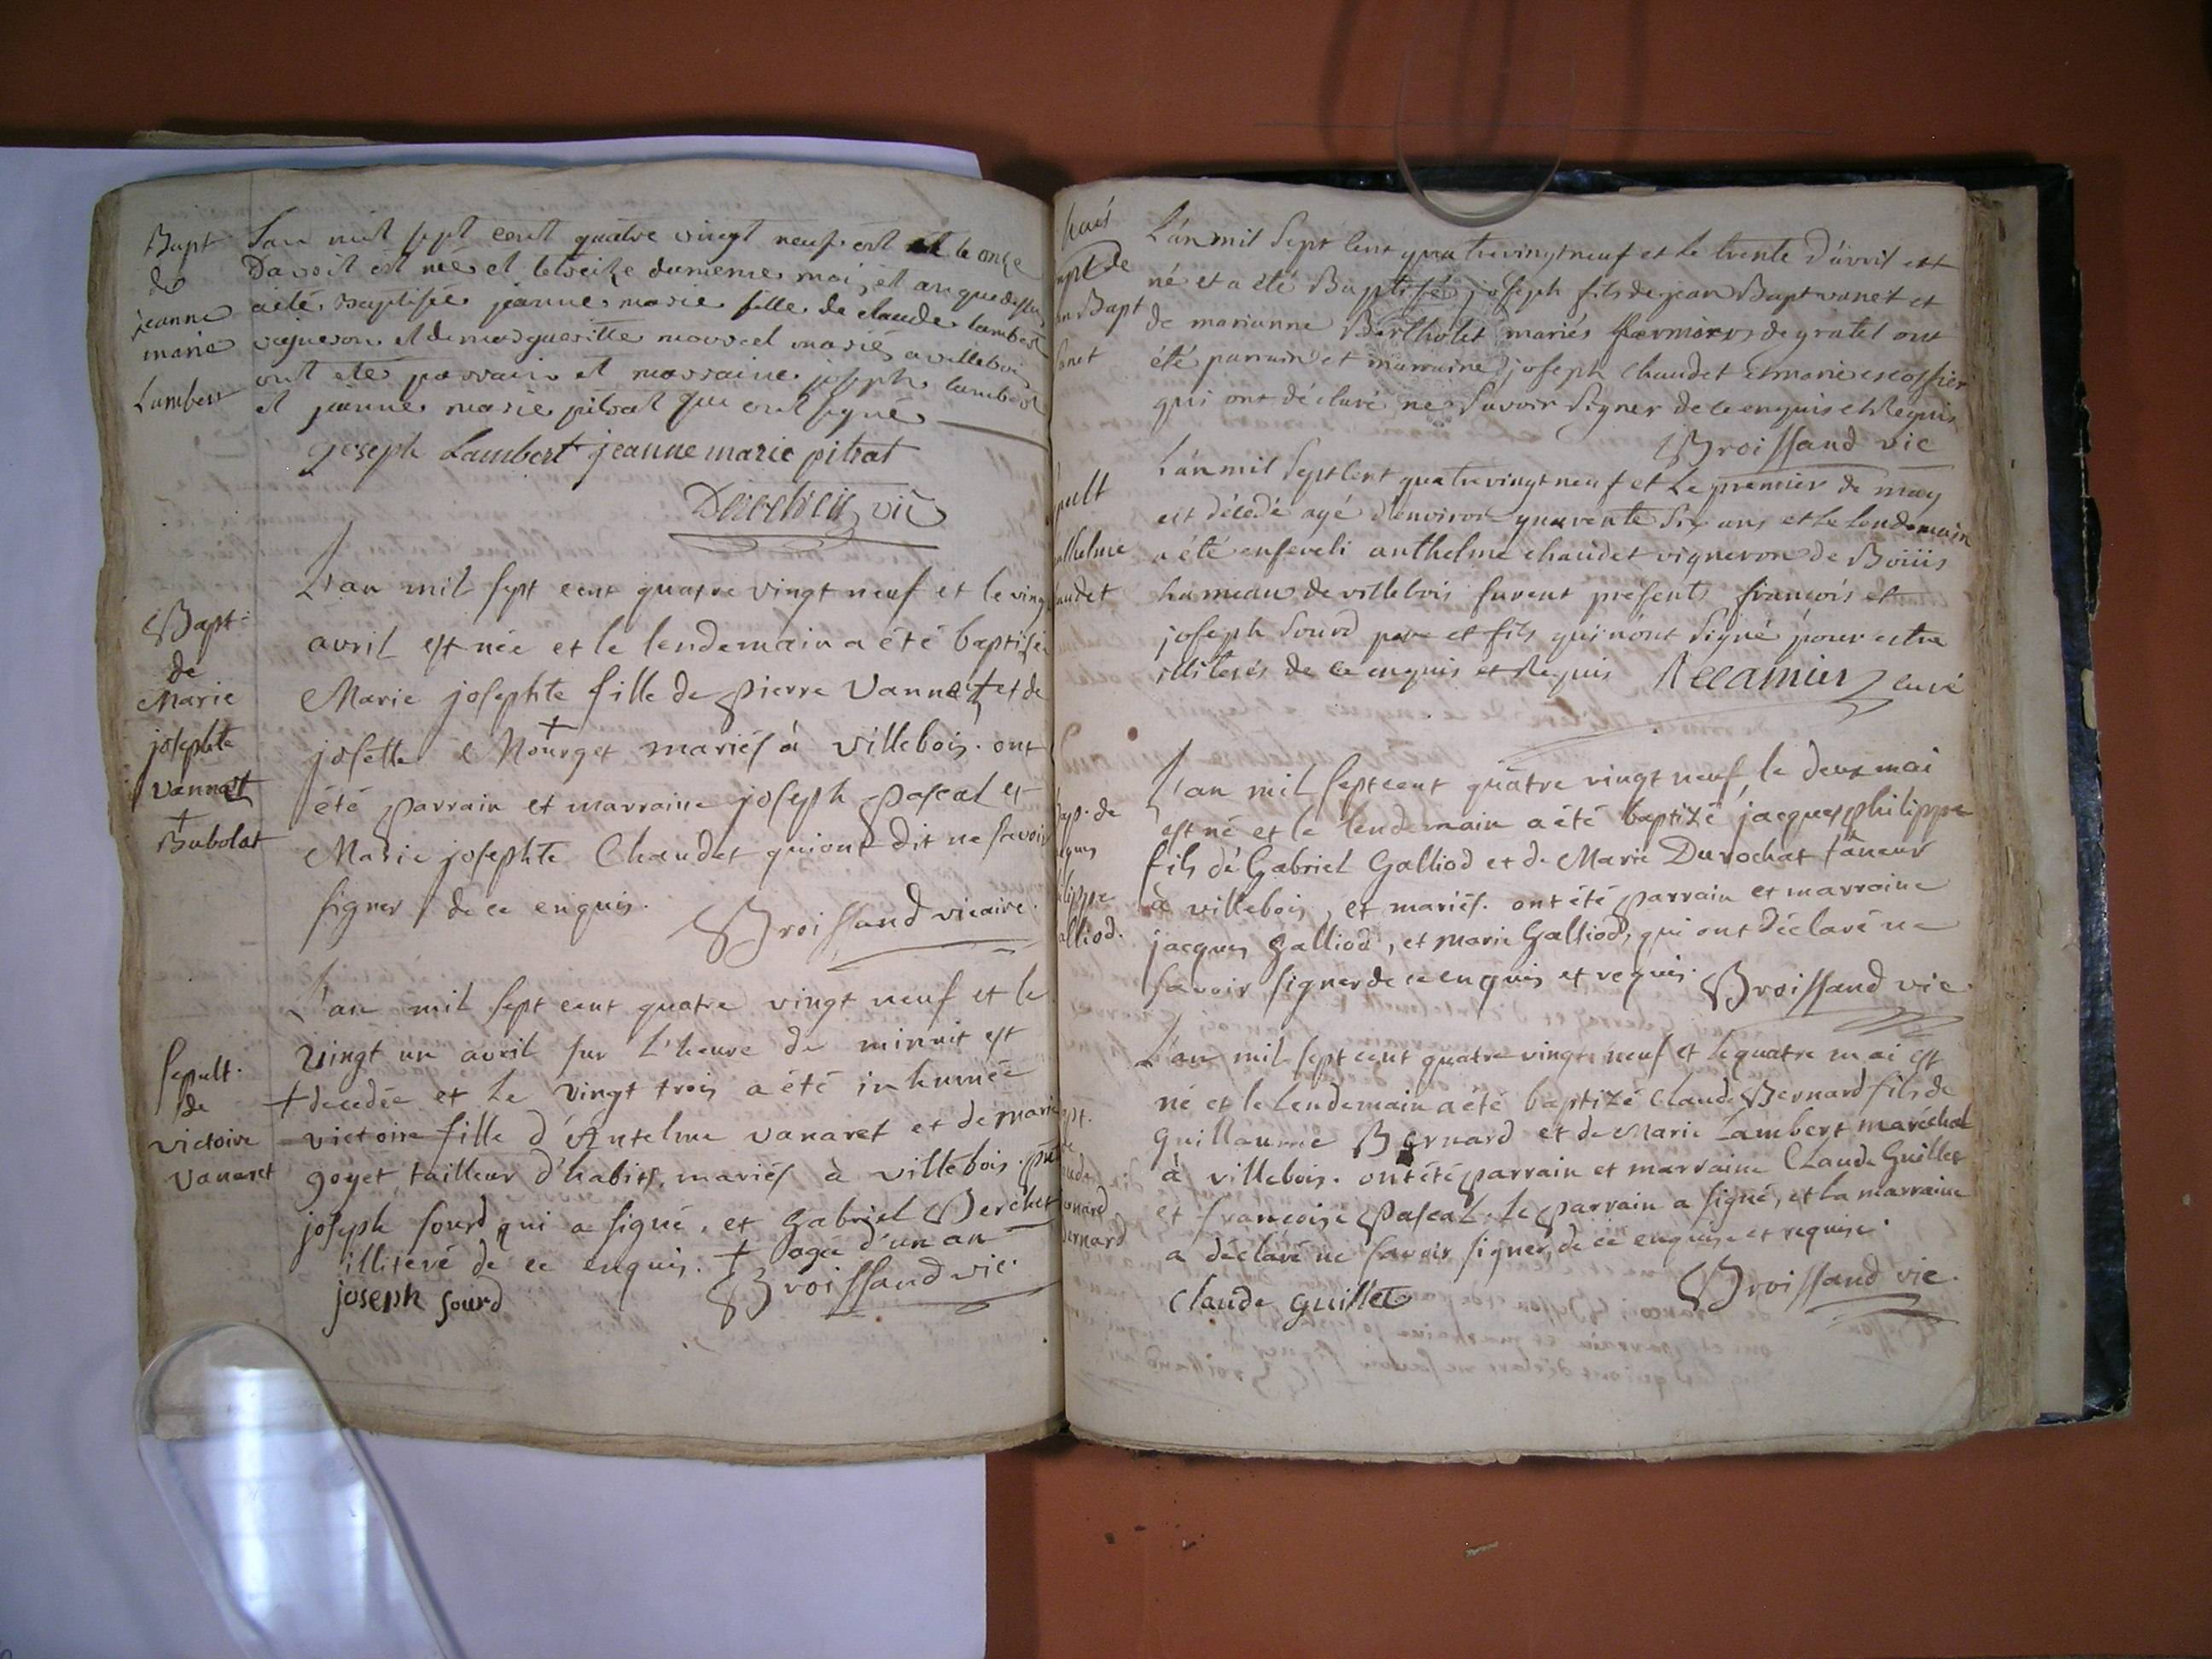 Bapt
de
jeanne
marie
Lambert
L'an mil sept cent quatre vingt neuf et le onze
d'avril est née et le treize du meme moi, et an que dessus
a été baptisée jeanne marie fille de claude lambert
vigneron et de margueritte mariés a villebois
ont été parrain et marraine joseph lambert
et jeanne marie pitrat qui ont signé
joseph Lambert jeanne marie pitrat
vic
Bapt
de
Marie
josephte
Vannart
†
Bubolat
L'an mil sept cent quatre vingt neuf et le vingt
avril est née et le lendemain a été baptisée
Marie josephte fille de pierre Vannart et de
josette † Nourget mariés à villebois. ont
été parrain et marraine joseph pascal et
Marie josephte Chaudet qui ont dit ne scavoir
signer de ce enquis.
Broissand vicaire.
sepult.
de
victoire
Vanaret
L'an mil sept cent quatre vingt neuf et le
vingt un avril sur l'heure de minuit est
† decedée et le vingt trois a été inhumée
victoire fille d'Antelme vanaret et de marie
goyet, tailleur d'habits, mariés à villebois.
joseph sourd qui a signé, et Gabriel Berchet
illiteré de ce enquis. † agée d'un an
joseph sourd Broissand vic.
apt de
Bapt
anet
L'an mil sept cent quatre vingt neuf et le trente d'avril est
né et a été Baptisé joseph fils de jean Bapt vanet et
de marianne Bertholet mariés fermiers de gratet ont
été parrain et marraine joseph Chaudet et marie escoffier
qui ont déclaré ne savoir signer de ce enquis et Requis
Broissand vic
pult
nthelme
audet
L'an mil sept cent quatre vingt neuf et le premier de may
est décédé agé d'environ quarente six ans et le lendemain
a été enseveli anthelme chaudet vigneron de Boiiis
hameau de villebois furent présents françois et
joseph Sourd pere et fils qui n'ont signé pour estre
illiterés de ce enquis et Requis Récamier curé
ap. de
ques
ilippe
alliod.
L'an mil sept cent quatre vingt neuf, le deux mai
est né et le lendemain a été baptizé jacques philippe
fils dé Gabriel Galliod et de Marie Durochat taneur
à villebois, et mariés. ont été parrain et marraine
jacques Galliod, et marie Galliod, qui ont déclaré ne
savoir signer de ce enquis et requis. Broissand vic.
pt.
de
aude
ernard
Bernard
L'an mil sept cent quatre vingt neuf et le quatre mai est
né et le lendemain a été baptizé Claude Bernard fils de
Guillaume Bernard et de Marie Lambert maréchal
à villebois. ont été parrain et marraine Claude Guillet
et françoise Pascal. le parrain a signé, et la marraine
a déclaré ne savoir signer, de ce enquise et requise.
Claude guillet Broissand vic.